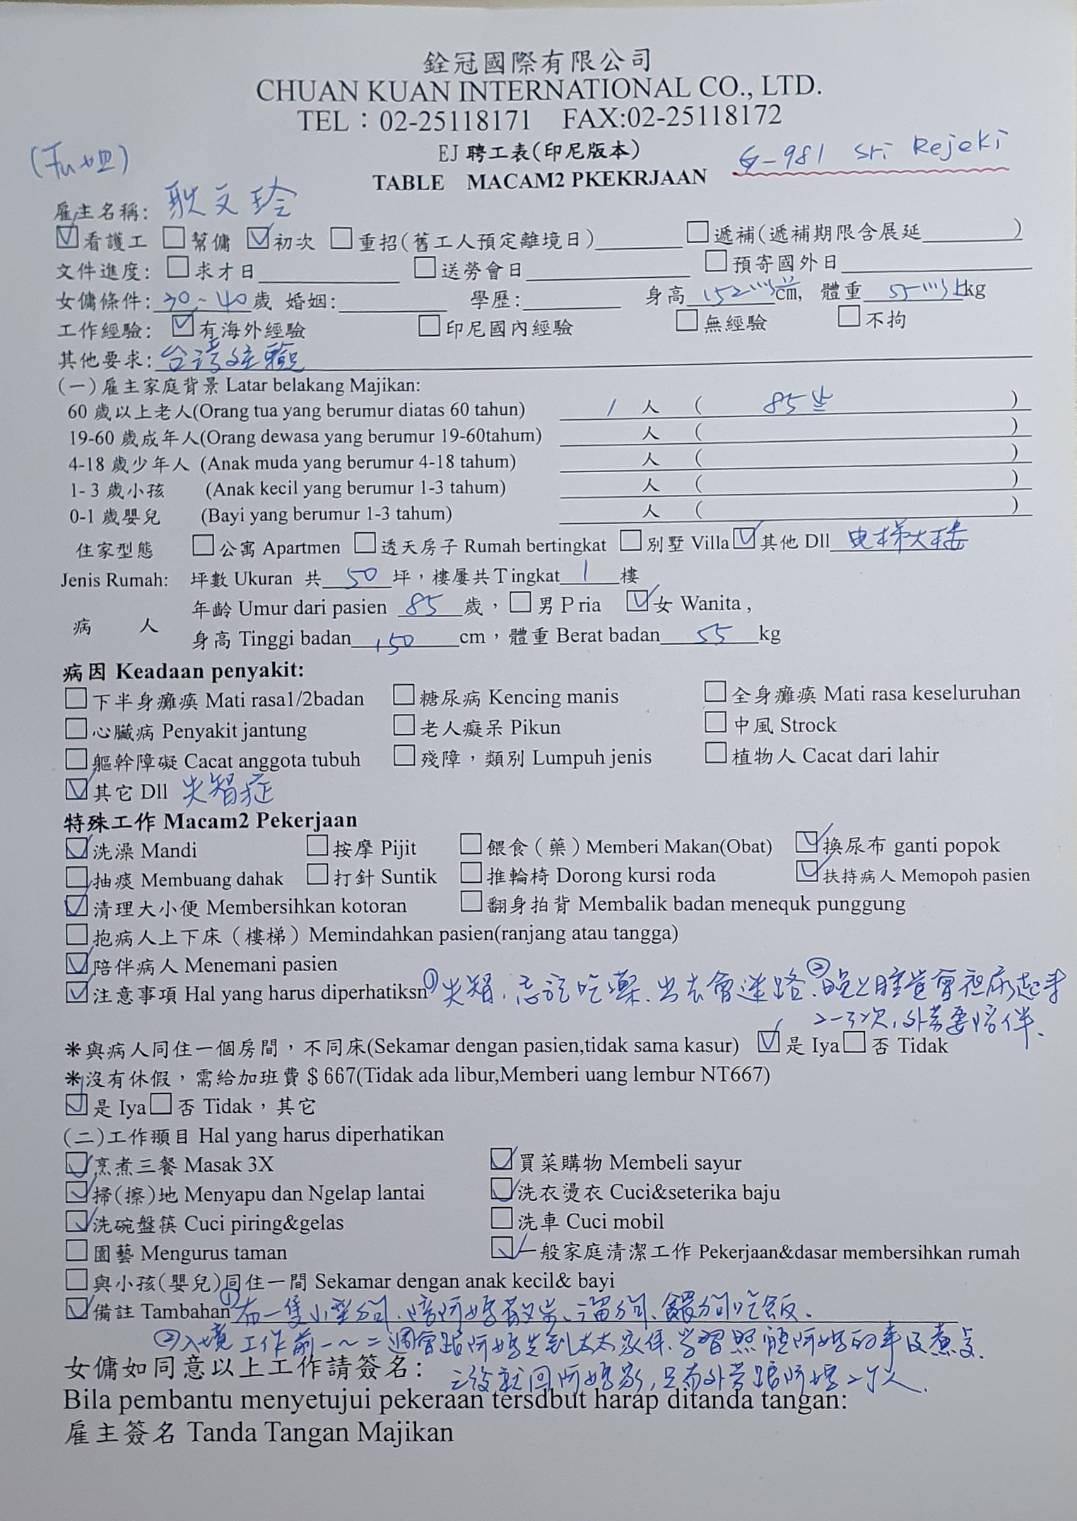 銓冠國際有限公司
CHUAN KUAN INTERNATIONAL CO., LTD.
TEL：02-25118171 FAX:02-25118172
EJ 聘工表(印尼版本)
G-981 Sri Rejeki
TABLE MACAM2 PKEKRJAAN
雇主名稱: 耿文玲
☑看護工 ☐幫傭 ☑初次 ☐重招(舊工人預定離境日)______ ☐遞補(遞補期限含展延______)
文件進度: ☐求才日______ ☐送勞會日______ ☐預寄國外日______
女傭條件: 30~40 歲 婚姻:______ 學歷:______ 身高 152以上 cm, 體重 55以上 kg
工作經驗: ☑有海外經驗 ☐印尼國內經驗 ☐無經驗 ☐不拘
其他要求: 台湾经驗
(一)雇主家庭背景 Latar belakang Majikan:
60 歲以上老人(Orang tua yang berumur diatas 60 tahun) 1 人 ( 85岁 )
19-60 歲成年人(Orang dewasa yang berumur 19-60tahum) 人 ( )
4-18 歲少年人 (Anak muda yang berumur 4-18 tahum) 人 ( )
1- 3 歲小孩 (Anak kecil yang berumur 1-3 tahum) 人 ( )
0-1 歲嬰兒 (Bayi yang berumur 1-3 tahum) 人 ( )
住家型態 ☐公寓 Apartmen ☐透天房子 Rumah bertingkat ☐別墅 Villa ☑其他 Dll 电梯大楼
Jenis Rumah: 坪數 Ukuran 共 50 坪，樓屢共Tingkat 1 樓
年齡 Umur dari pasien 85 歲，☐男 Pria ☑女 Wanita ,
病 人 身高 Tinggi badan 150 cm，體重 Berat badan 55 kg
病因 Keadaan penyakit:
☐下半身癱瘓 Mati rasa1/2badan ☐糖尿病 Kencing manis ☐全身癱瘓 Mati rasa keseluruhan
☐心臟病 Penyakit jantung ☐老人癡呆 Pikun ☐中風 Strock
☐軀幹障礙 Cacat anggota tubuh ☐殘障，類別 Lumpuh jenis ☐植物人 Cacat dari lahir
☑其它 Dll 失智症
特殊工作 Macam2 Pekerjaan
☑洗澡 Mandi ☐按摩 Pijit ☐餵食（藥）Memberi Makan(Obat) ☑換尿布 ganti popok
☐抽痰 Membuang dahak ☐打針 Suntik ☐推輪椅 Dorong kursi roda ☑扶持病人 Memopoh pasien
☑清理大小便 Membersihkan kotoran ☐翻身拍背 Membalik badan menequk punggung
☐抱病人上下床（樓梯）Memindahkan pasien(ranjang atau tangga)
☑陪伴病人 Menemani pasien
☑注意事項 Hal yang harus diperhatiksn ①失智.忘記吃藥.出去會迷路.②晚上睡觉會夜尿起来
2-3次,外劳要陪伴.
＊與病人同住一個房間，不同床(Sekamar dengan pasien,tidak sama kasur) ☑是 Iya☐否 Tidak
＊沒有休假，需給加班費＄667(Tidak ada libur,Memberi uang lembur NT667)
☑是 Iya☐否 Tidak，其它
(二)工作項目 Hal yang harus diperhatikan
☑烹煮三餐 Masak 3X ☑買菜購物 Membeli sayur
☑掃(擦)地 Menyapu dan Ngelap lantai ☑洗衣燙衣 Cuci&seterika baju
☑洗碗盤筷 Cuci piring&gelas ☐洗車 Cuci mobil
☐園藝 Mengurus taman ☑一般家庭清潔工作 Pekerjaan&dasar membersihkan rumah
☐與小孩(嬰兒)同住一間 Sekamar dengan anak kecil& bayi
☑備註 Tambahan ①有一隻小型狗.陪阿嬷散步、溜狗.餵狗吃飯.
②入境工作前一~二週會跟阿嬷先到太太家住.学習照顧阿嬷的事及煮食.
女傭如同意以上工作請簽名：
之後就回阿嬷家,只有外劳跟阿嬷2个人.
Bila pembantu menyetujui pekeraan tersdbut harap ditanda tangan:
雇主簽名 Tanda Tangan Majikan